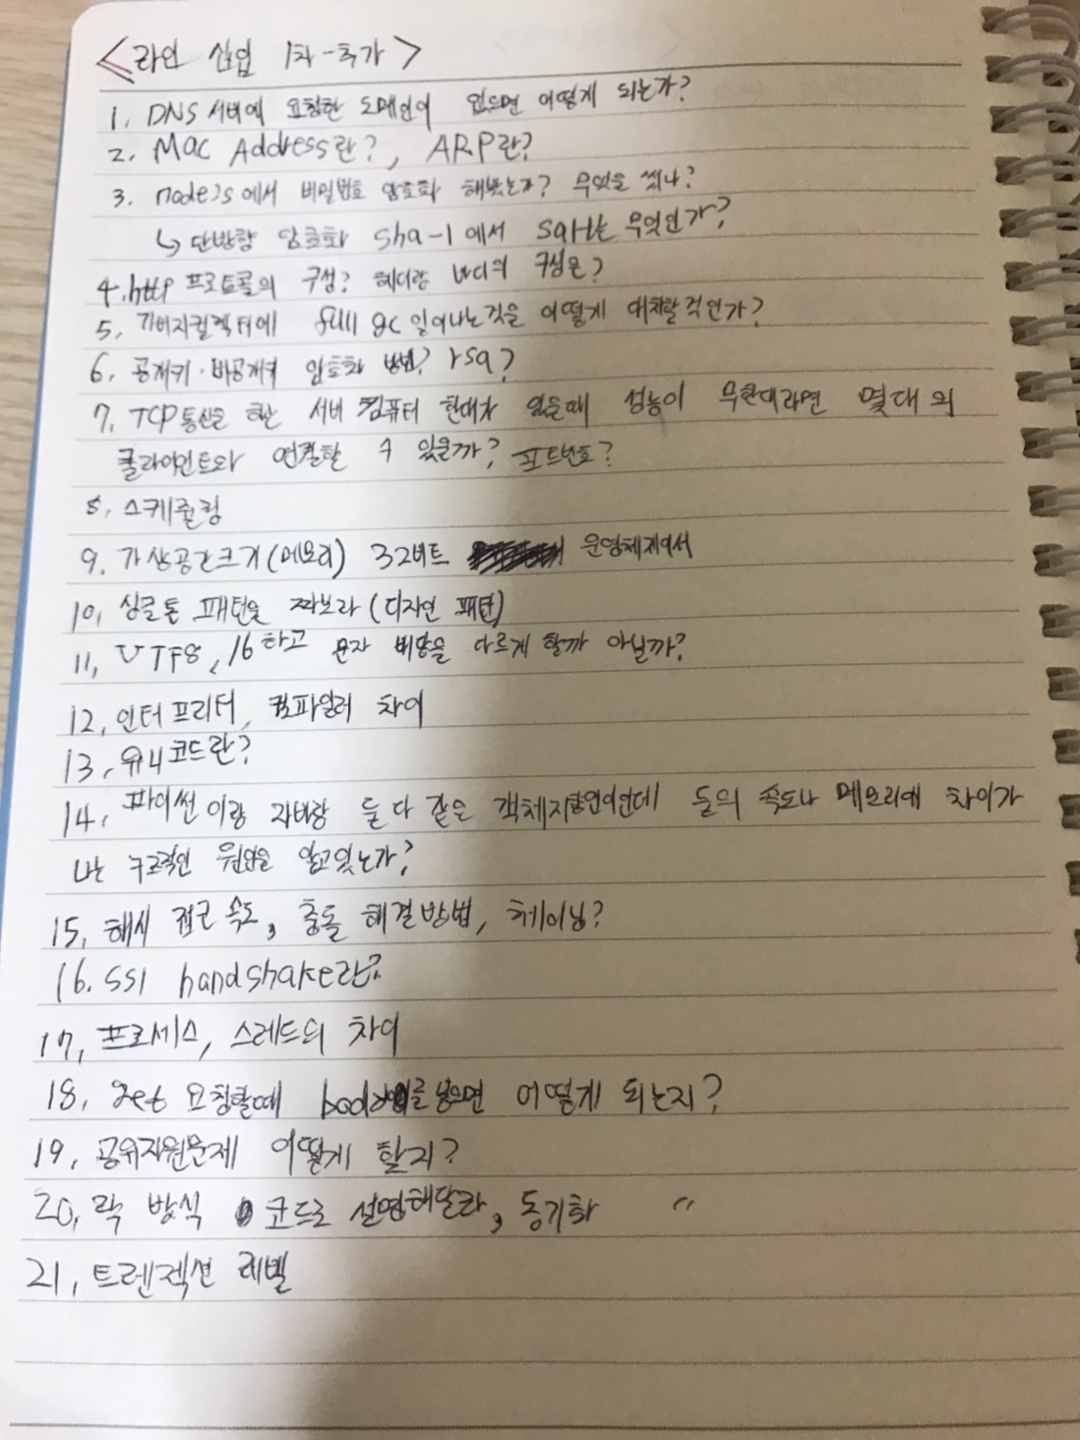 <라인 신입 1차-추가>
1. DNS 서버에 요청한 도메인이 없으면 어떻게 되는가?
2. Mac Address란?, ARP란?
3. nodejs에서 비밀번호 암호화 해봤는가? 무엇을 썼나?
↳ 단방향 암호화 sha-1에서 salt는 무엇인가?
4. http 프로토콜의 구성? 헤더랑 바디의 구성은?
5. 가비지컬렉터에 full gc 일어나는것을 어떻게 대처할것인가?
6. 공개키·비공개키 암호화 방법? rsa?
7. TCP통신을 하는 서버 컴퓨터 한대가 있을때 성능이 무한대라면 몇대의
클라이언트와 연결할 수 있을까? 포트번호?
8. 스케줄링
9. 가상공간크기(메모리) 32비트 운영체제에서
10. 싱글톤 패턴을 짜보라(디자인 패턴)
11. UTF8, 16 라고 문자 배열을 다르게 할까 아닐까?
12. 인터프리터, 컴파일러 차이
13. 유니코드란?
14. 파이썬이랑 자바랑 둘다 같은 객체지향언어인데 둘의 속도나 메모리에 차이가
나는 구조적인 원인을 알고있는가?
15. 해시 접근 속도, 충돌 해결방법, 체이닝?
16. ssl handshake란?
17. 프로세스, 스레드의 차이
18. get 요청할때 body를 넣으면 어떻게 되는지?
19. 공유자원문제 어떻게 할지?
20. 락 방식 코드로 설명해달라, 동기화 〃
21. 트렌젝션 레벨